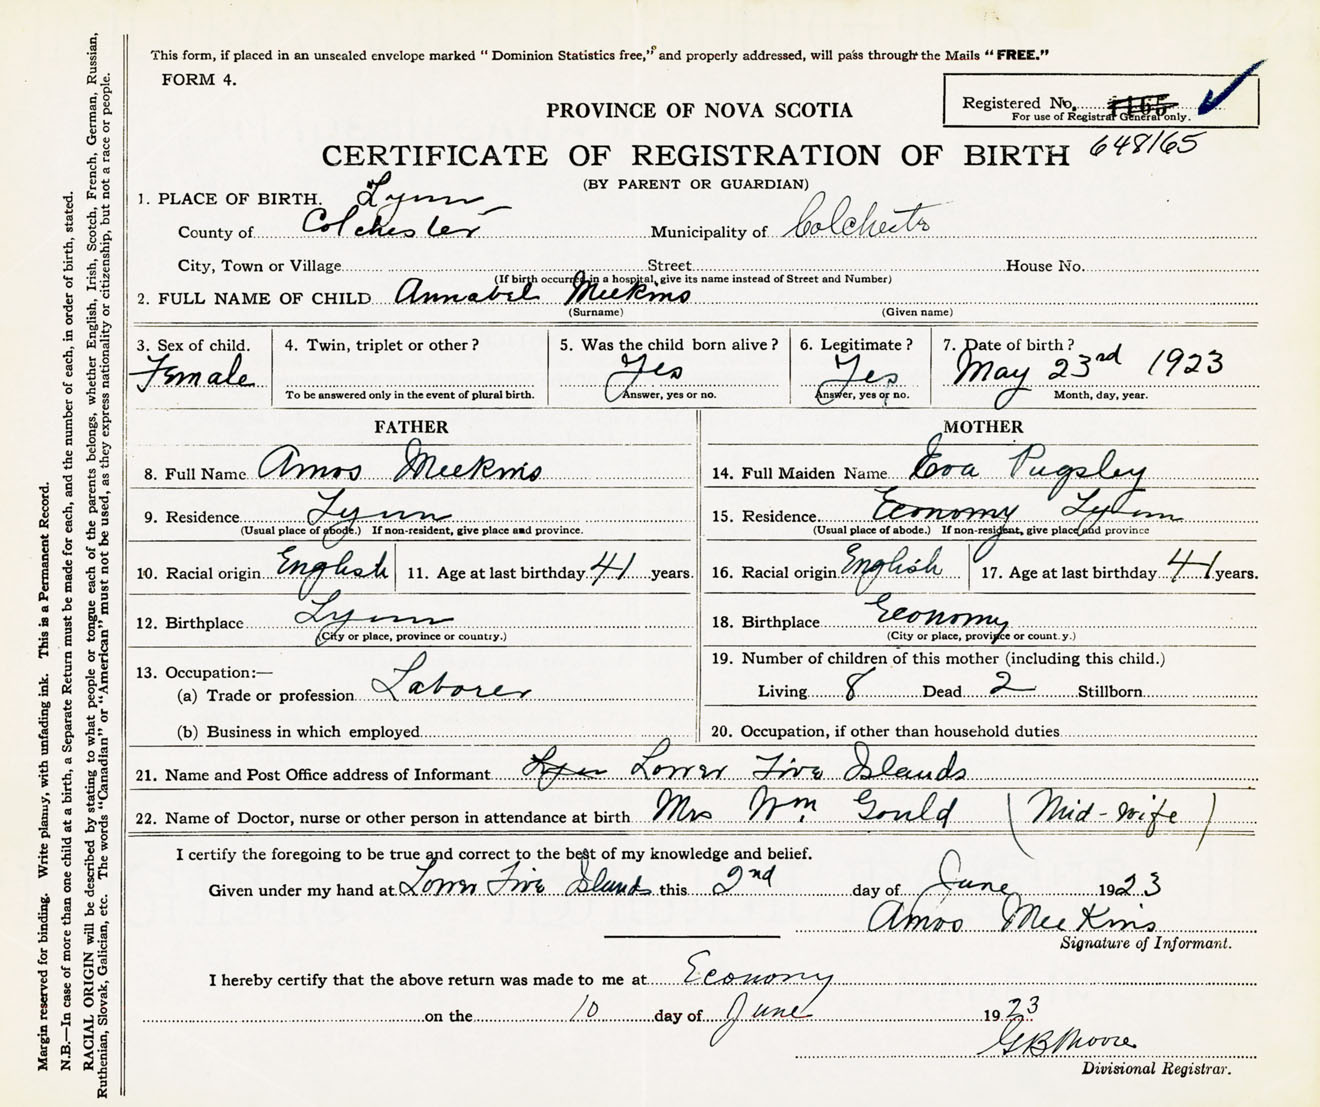 This form, if placed in an unsealed envelope marked “ Dominion Statistics free,” and properly addressed, will pass through the Mails “ FREE.”
FORM 4.
Registered No. 1165
For use of Registrar General only.
PROVINCE OF NOVA SCOTIA
CERTIFICATE OF REGISTRATION OF BIRTH 648165
(BY PARENT OR GUARDIAN)
1. PLACE OF BIRTH. Lynn
County of Colchester Municipality of Colchester
City, Town or Village Street House No.
(If birth occurred in a hospital, give its name instead of Street and Number)
2. FULL NAME OF CHILD Annabel Meekins
(Surname) (Given name)
3. Sex of child. 4. Twin, triplet or other ? 5. Was the child born alive ? 6. Legitimate ? 7. Date of birth ?
Female Yes Yes May 23rd 1923
To be answered only in the event of plural birth. Answer, yes or no. Answer, yes or no. Month, day, year.
FATHER MOTHER
8. Full Name Amos Meekins 14. Full Maiden Name Eva Pugsley
9. Residence Lynn 15. Residence Economy Lynn
(Usual place of abode.) If non-resident, give place and province. (Usual place of abode.) If non-resident, give place and province
10. Racial origin English 11. Age at last birthday 41 years. 16. Racial origin English 17. Age at last birthday 41 years.
12. Birthplace Lynn 18. Birthplace Economy
(City or place, province or country.) (City or place, province or count.y.)
13. Occupation:— 19. Number of children of this mother (including this child.)
(a) Trade or profession Laborer Living 8 Dead 2 Stillborn
(b) Business in which employed 20. Occupation, if other than household duties
21. Name and Post Office address of Informant Lower Five Islands
22. Name of Doctor, nurse or other person in attendance at birth Mrs Wm. Gould (Mid-wife)
I certify the foregoing to be true and correct to the best of my knowledge and belief.
Given under my hand at Lower Five Islands this 2nd day of June 1923
Amos Meekins
Signature of Informant.
I hereby certify that the above return was made to me at Economy
on the 10 day of June 1923
GB Moore
Divisional Registrar.
Margin reserved for binding. Write plainly, with unfading ink. This is a Permanent Record.
N.B.—In case of more than one child at a birth, a Separate Return must be made for each, and the number of each, in order of birth, stated.
RACIAL ORIGIN will be described by stating to what people or tongue each of the parents belongs, whether English, Irish, Scotch, French, German, Russian,
Ruthenian, Slovak, Galician, etc. The words “Canadian” or “American” must not be used, as they express nationality or citizenship, but not a race or people.